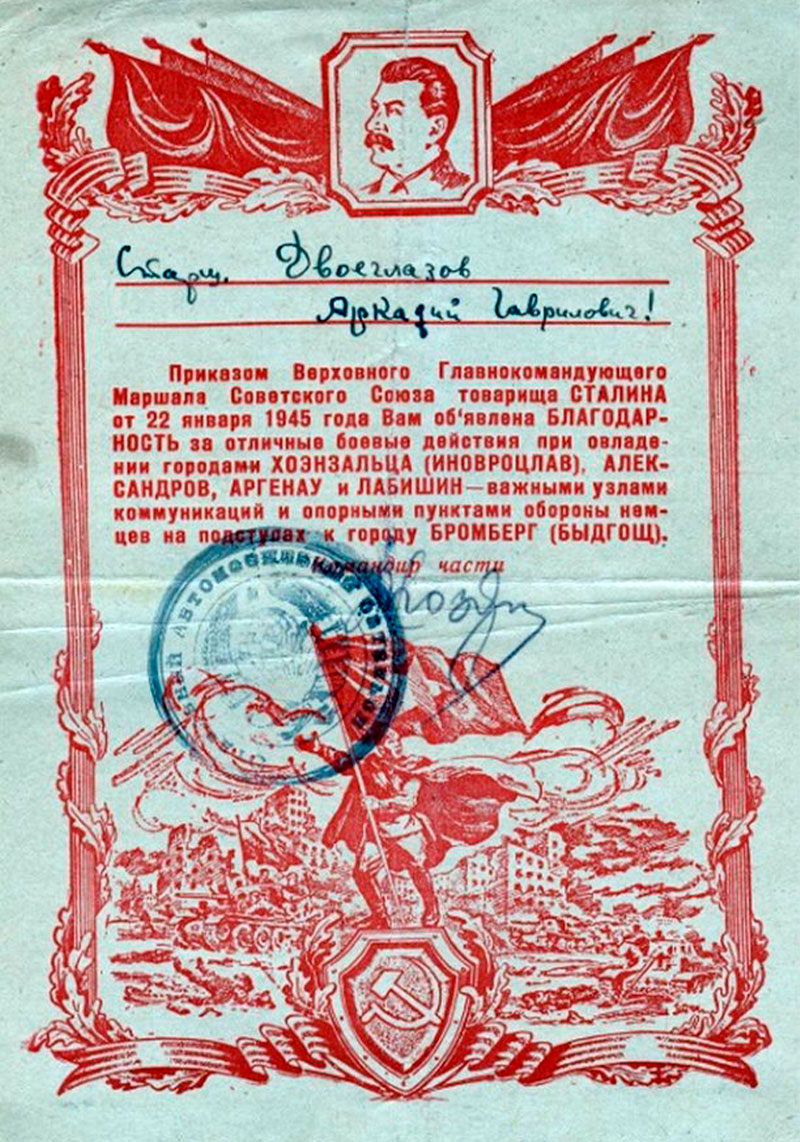 Старш. Двоеглазов
Аркадий Гаврилович!
Приказом Верховного Главнокомандующего
Маршала Советского Союза товарища СТАЛИНА
от 22 января 1945 года Вам об‘явлена БЛАГОДАР-
НОСТЬ за отличные боевые действия при овладе-
нии городами ХОЭНЗАЛЬЦА (ИНОВРОЦЛАВ), АЛЕК-
САНДРОВ, АРГЕНАУ и ЛАБИШИН—важными узлами
коммуникаций и опорными пунктами обороны нем-
цев на подступах к городу БРОМБЕРГ (БЫДГОЩ).
Командир части
АВТОМОБИЛЬНЫЙ БАТАЛЬОН